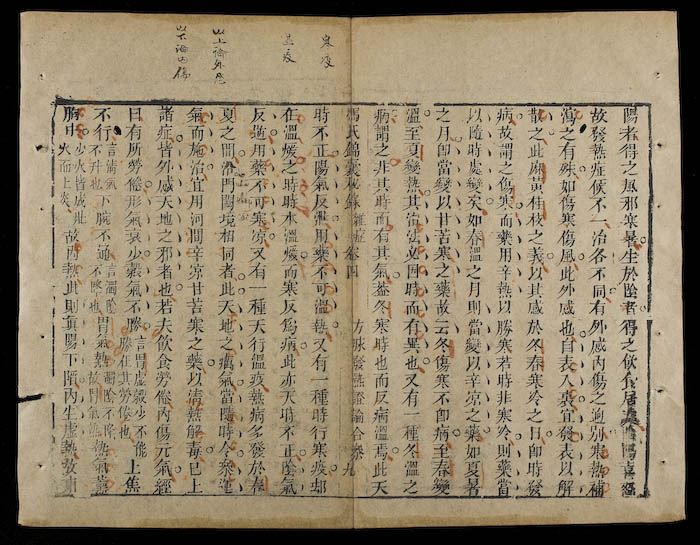 寒疫
溫疫
以上論外感
以下論內傷
陽者得之風邪寒暑生於陰者得之飲食居處陰陽喜怒
故發熱症候不一治各不同有外感內傷之逈別寒熱補
瀉之有殊如傷寒傷風此外感也自表入裏宜發表以解
散之此麻黃桂枝之義以其感於冬春寒冷之日卽時發
病故謂之傷寒而藥用辛熱以勝寒若時非寒冷則藥當
以隨時處變矣如春溫之月則當變以辛凉之藥如夏暑
之月卽當變以甘苦寒之藥故云冬傷寒不卽病至春變
溫至夏變熱其治法必因時而有異也又有一種冬溫之
病謂之非其時而有其氣葢冬寒時也而反病溫焉此天
馮氏錦囊秘錄 雜症卷四 方脉發熱證論合參 九
時不正陽氣反泄用藥不可溫熱又有一種時行寒疫却
在溫煖之時時本溫煖而寒反爲病此亦天時不正陰氣
反逆用藥不可寒凉又有一種天行溫疫熱病多發於春
夏之間沿門闔境相同者此天地之癘氣當隨時令參運
氣而施治宜用河間辛凉甘苦寒之藥以清熱解毒已上
諸症皆外感天地之邪者也若夫飲食勞倦內傷元氣經
曰有所勞倦形氣衰少穀氣不勝言胃虛穀少不能勝任其勞倦也上焦
不行言清氣不升也下脘不通言濁陰不降也胃氣熱濁陰不降故胃氣熱熱氣薰
胸中少火皆成壯火而上炎故內熱此則眞陽下陷內生虛熱故東